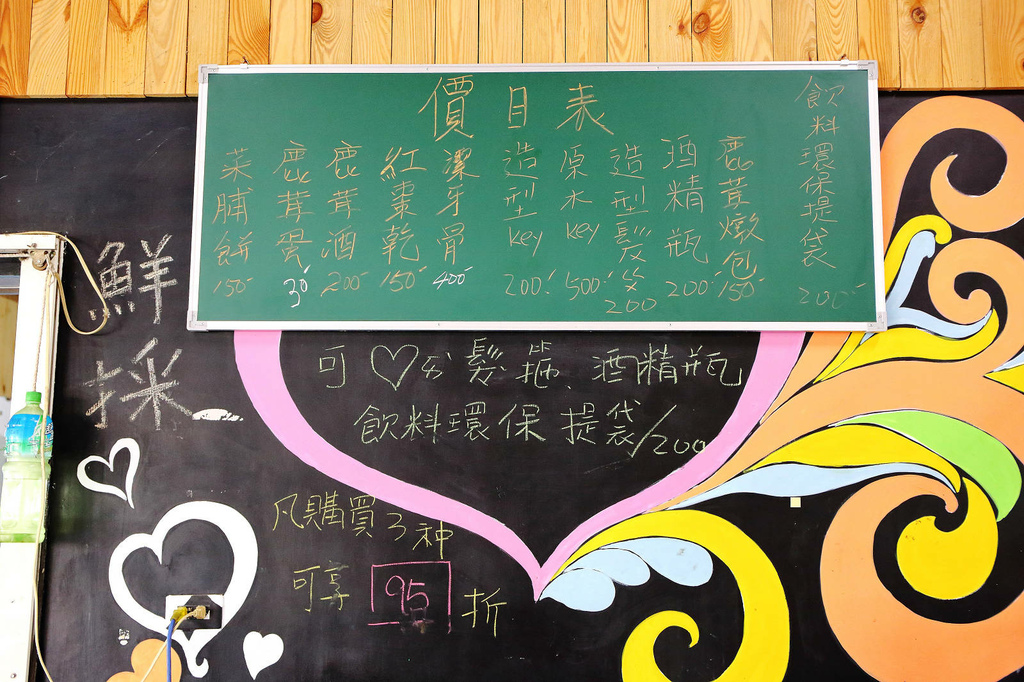 價目表
飲料環保提袋 200
鹿茸燉包 150
酒精瓶 200
造型髮笑 200
原木key 500
造型key 200
潔牙骨 400
紅棗乾 150
鹿茸酒 200
鹿茸蛋 30
菜脯餅 150
鮮採
可♡的髮箍、酒精瓶
飲料環保提袋/200
凡購買3种
可享95折